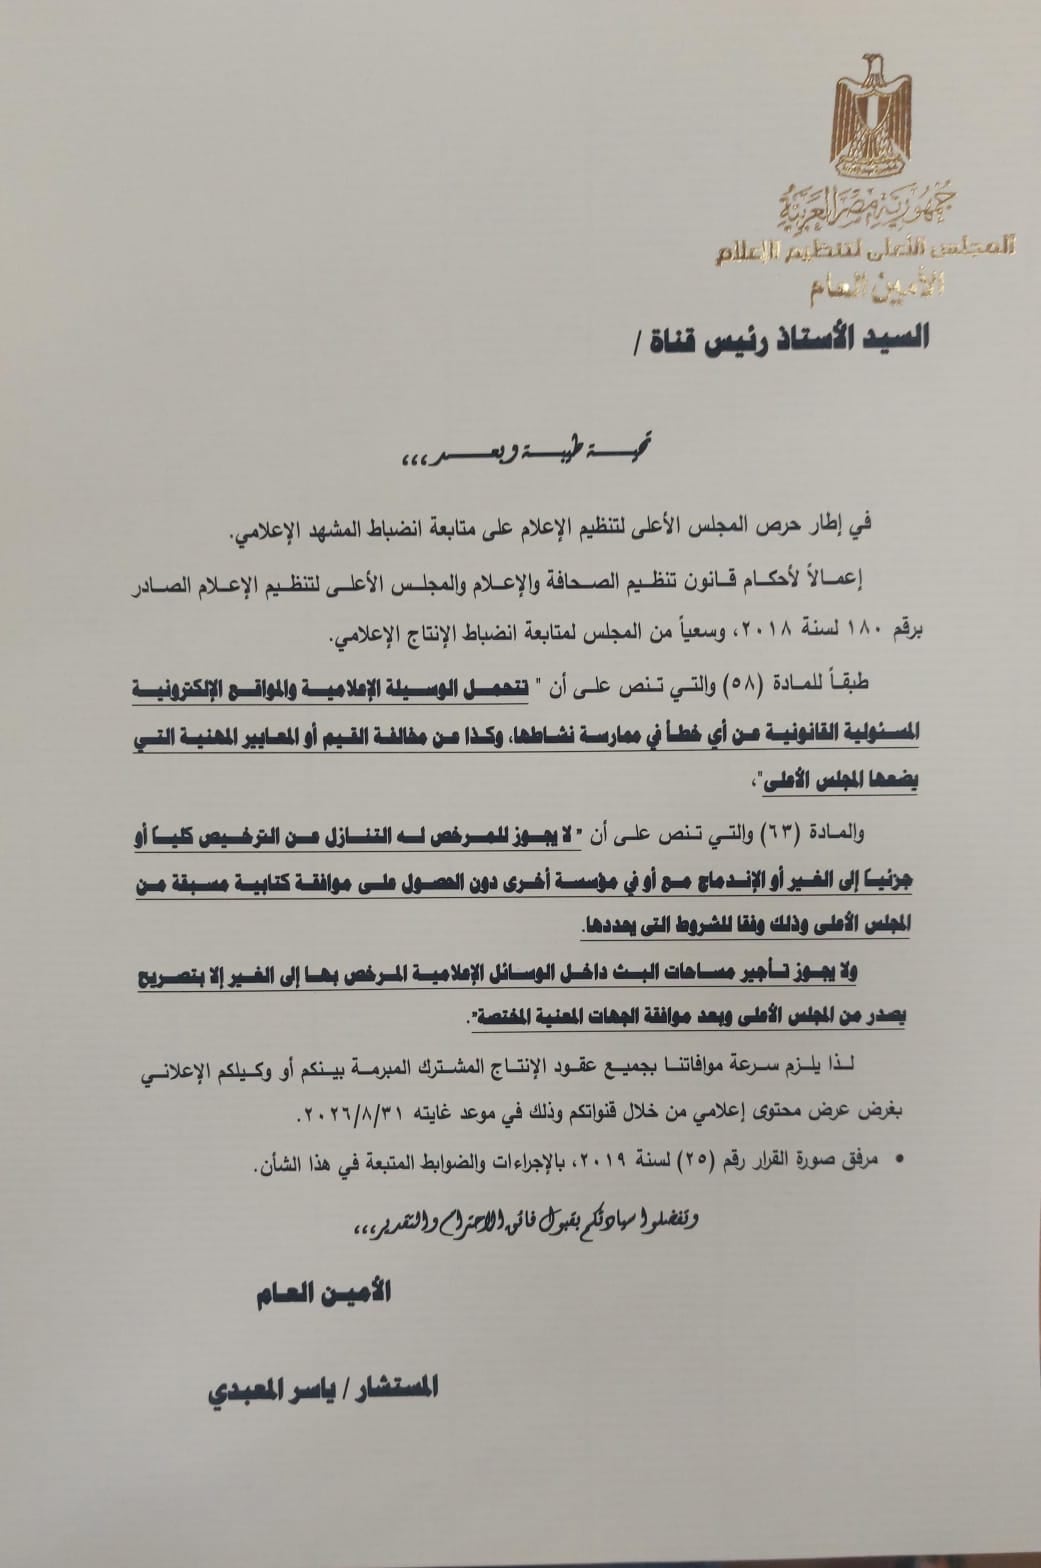 جمهورية مصر العربية
المجلس الأعلى لتنظيم الإعلام
الأمين العام
السيد الأستاذ رئيس قناة /
تحية طيبة وبعد ،،،
في إطار حرص المجلس الأعلى لتنظيم الإعلام على متابعة انضباط المشهد الإعلامي.
إعمالاً لأحكام قانون تنظيم الصحافة والإعلام والمجلس الأعلى لتنظيم الإعلام الصادر
برقم ١٨٠ لسنة ٢٠١٨، وسعياً من المجلس لمتابعة انضباط الإنتاج الإعلامي.
طبقاً للمادة (٥٨) والتي تنص على أن " تتحمل الوسيلة الإعلامية والمواقع الإلكترونية
المسئولية القانونية عن أي خطأ في ممارسة نشاطها، وكذا عن مخالفة القيم أو المعايير المهنية التي
يضعها المجلس الأعلى"،
والمادة (٦٣) والتي تنص على أن " لا يجوز للمرخص له التنازل عن الترخيص كلياً أو
جزئياً إلى الغير أو الإندماج مع أو في مؤسسة أخرى دون الحصول على موافقة كتابية مسبقة من
المجلس الأعلى وذلك وفقا للشروط التى يحددها.
ولا يجوز تأجير مساحات البث داخل الوسائل الإعلامية المرخص بها إلى الغير إلا بتصريح
يصدر من المجلس الأعلى وبعد موافقة الجهات المعنية المختصة".
لذا يلزم سرعة موافاتنا بجميع عقود الإنتاج المشترك المبرمة بينكم أو وكيلكم الإعلاني
بغرض عرض محتوى إعلامي من خلال قنواتكم وذلك في موعد غايته ٢٠٢٦/٨/٣١.
• مرفق صورة القرار رقم (٢٥) لسنة ٢٠١٩، بالإجراءات والضوابط المتبعة في هذا الشأن.
وتفضلوا سيادتكم بقبول فائق الاحترام والتقدير،،،
الأمين العام
المستشار / ياسر المعبدي